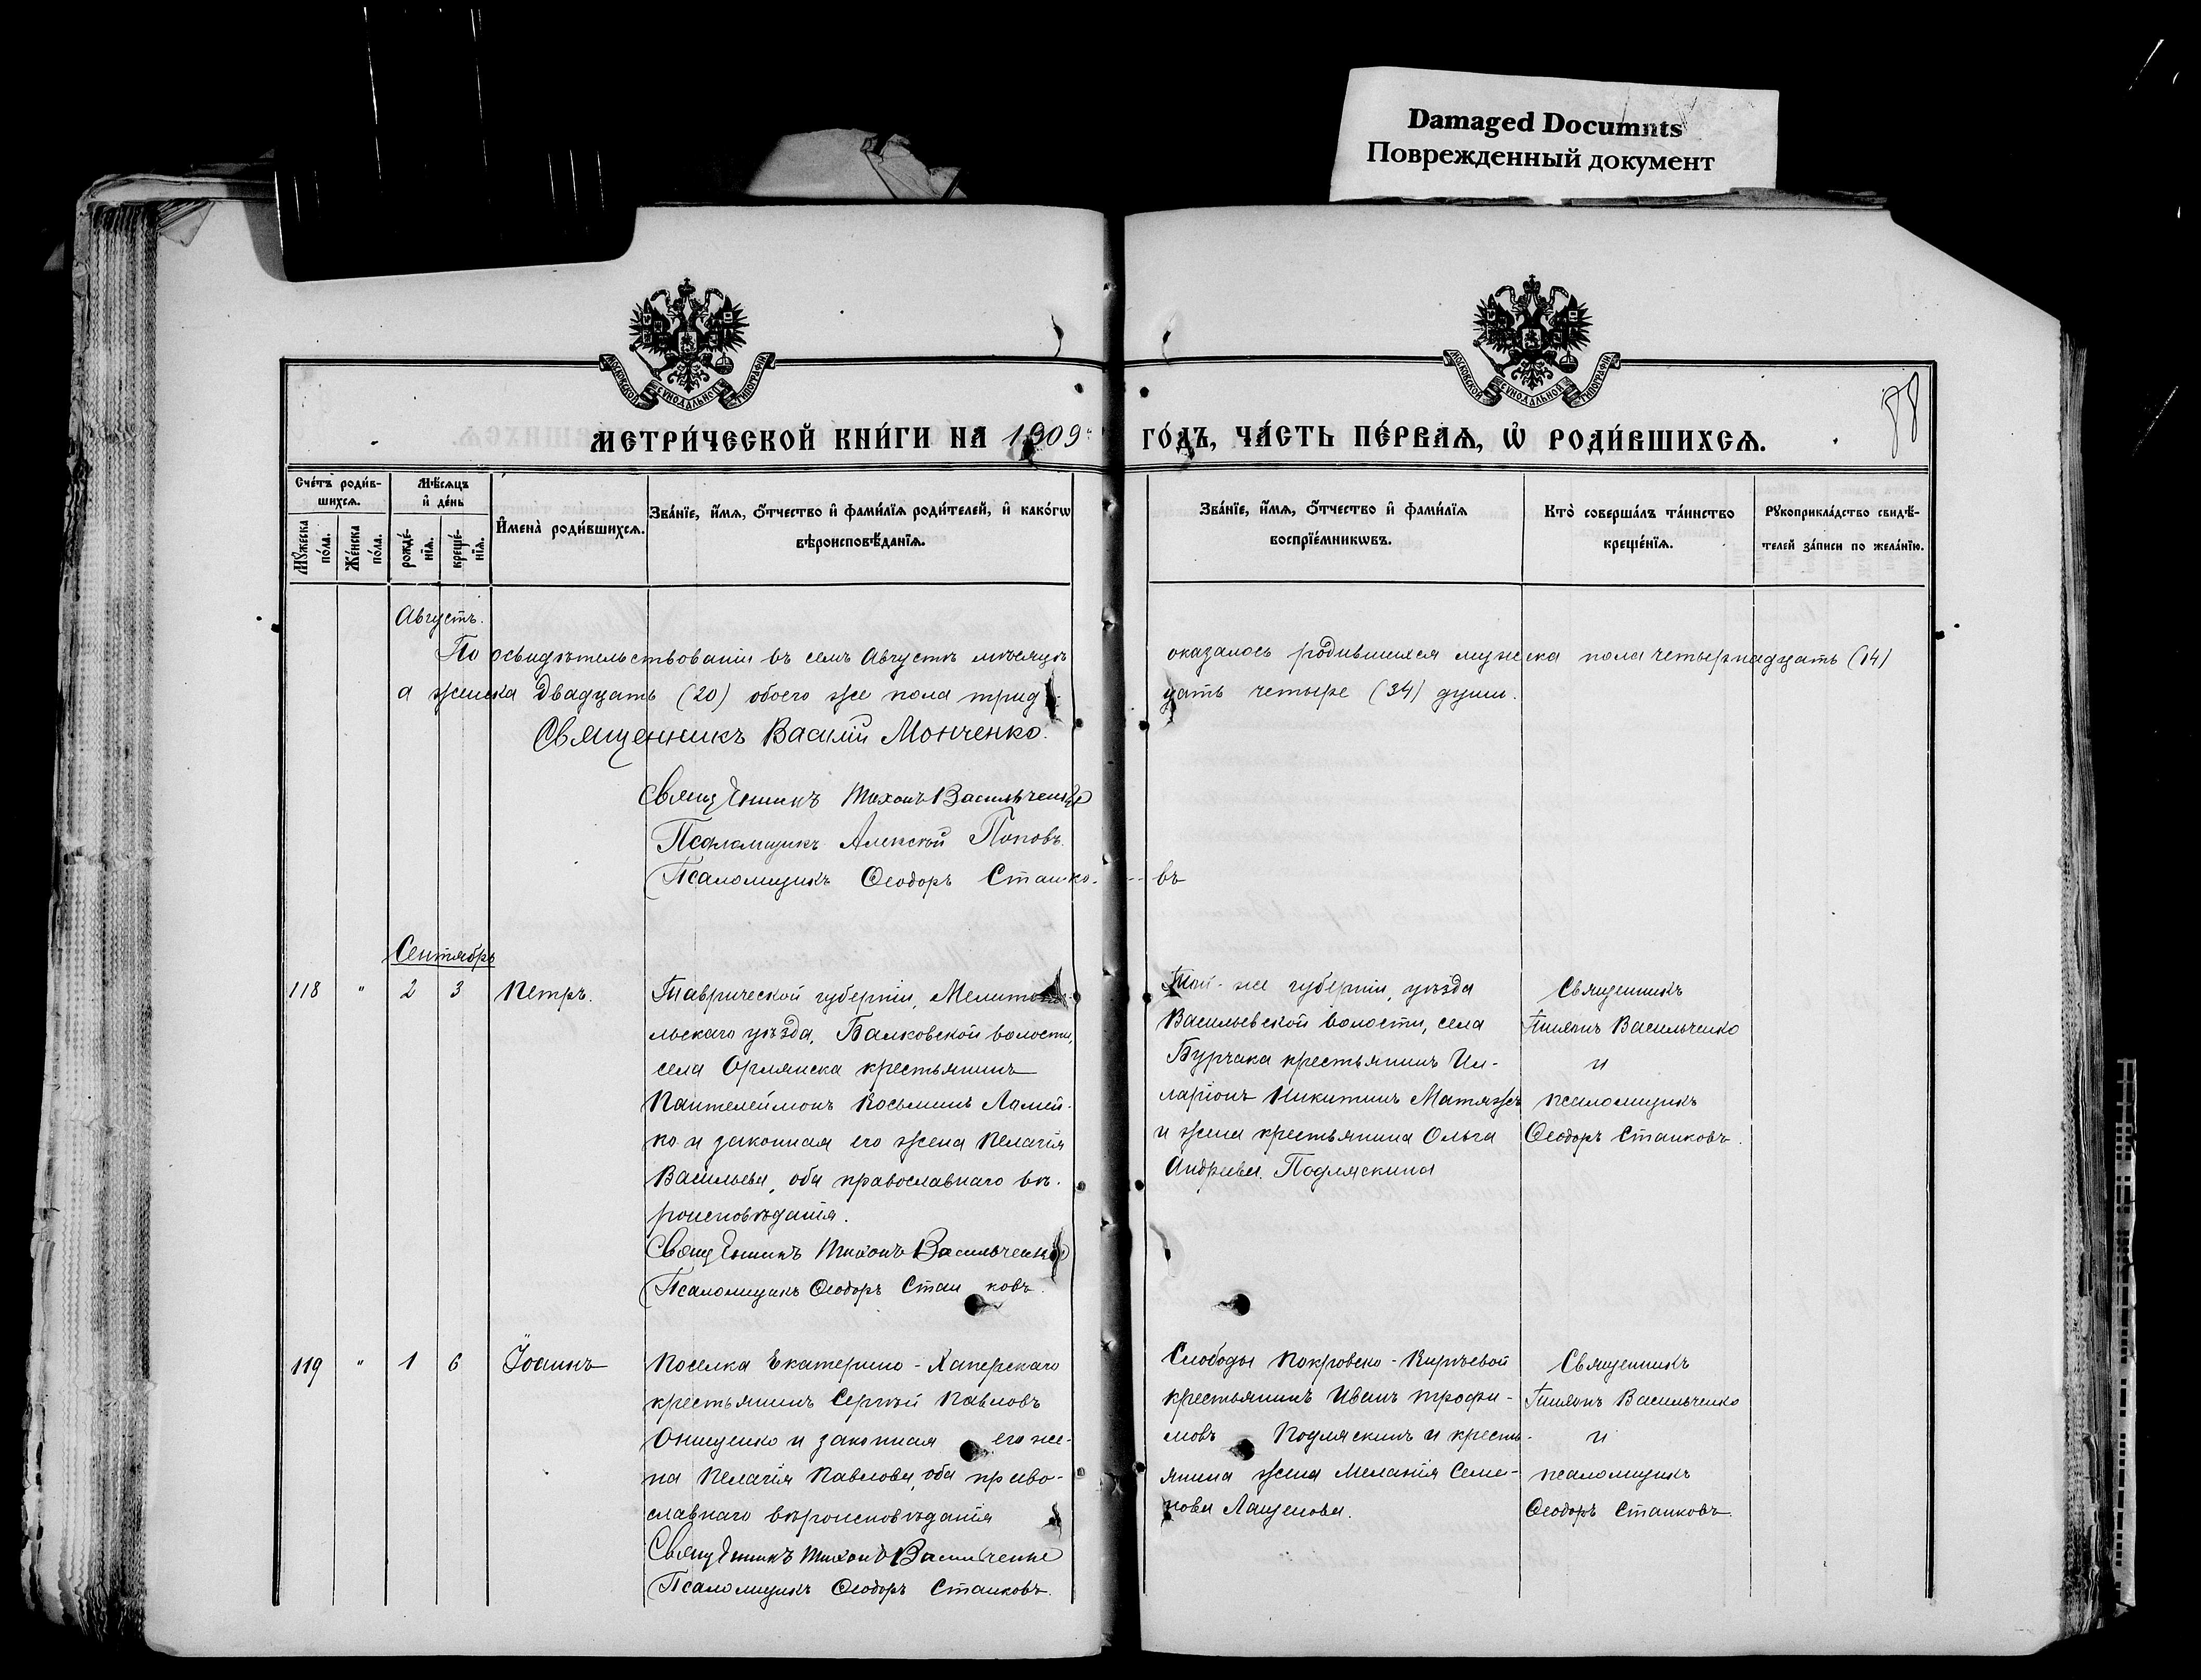 Damaged Documnts
Поврежденный документ
МОСКОВСКОЙ СУНОДАЛЬНОЙ ТИПОГРАФІИ
МОСКОВСКОЙ СУНОДАЛЬНОЙ ТИПОГРАФІИ
88
МЕТРИ́ЧЕСКОЙ КНИ́ГИ НА 1909 г. ГО́ДЪ, ЧА́СТЬ ПЕ́РВАѦ, Ѽ РОДИ́ВШИХСѦ.
Сче́тъ роди́в-
шихсѧ.
Мꙋжеска по́ла.
Же́нска по́ла.
Мѣ́сѧцъ
и҆ де́нь
рожде́-
нїѧ.
креще́-
нїѧ.
И҆мена̀ роди́вшихсѧ.
Зва́нїе, и҆́мѧ, ѻ҆́тчество и҆ фами́лїѧ роди́телей, и҆ како́гѡ
вѣроисповѣ́данїѧ.
Зва́нїе, и҆́мѧ, ѻ҆́тчество и҆ фами́лїѧ
воспрїе́мникѡвъ.
Кто̀ соверша́лъ та́инство
креще́нїѧ.
Рꙋкоприкла́дство свидѣ́-
телей за́писи по жела́нїю.
Августъ.
По освидѣтельствованіи въ семъ Августѣ мѣсяцѣ оказалось родившихся мужеска пола четырнадцать (14)
а женска двадцать (20) обоего же пола трид- цать четыре (34) души.
Священникъ Василій Монченко.
Священникъ Тихонъ Васильченко
Псаломщикъ Алексѣй Поповъ.
Псаломщикъ Ѳеодоръ Станко- - въ
Сентябрь
118 " 2 3 Петръ.
Таврической губерніи, Мелитопо-
льскаго уѣзда, Балковской волости,
села Орлянска крестьянинъ
Пантелеймонъ Косьминъ Ламей-
ко и законная его жена Пелагія
Васильева, оба православнаго вѣ-
роисповѣданія.
Священникъ Тихонъ Васильченко
Псаломщикъ Ѳеодоръ Стан ковъ.
Той-же губерніи, уѣзда
Васильевской волости, села
Бурчака крестьянинъ Ил-
ларіонъ Никитинъ Матяжъ
и жена крестьянина Ольга
Андреева Подляскина
Священникъ
Тихонъ Васильченко
и
псаломщикъ
Ѳеодоръ Станковъ.
119 " 1 6 Іоаннъ
Поселка Екатерино-Хаперскаго
крестьянинъ Сергѣй Павловъ
Онищенко и законная его же-
на Пелагія Павлова, оба право-
славнаго вѣроисповѣданія
Священникъ Тихонъ Васильченко
Псаломщикъ Ѳеодоръ Станковъ.
Слободы Покровско-Кирѣевой
крестьянинъ Иванъ Трофи-
мовъ Подляскинъ и кресть-
янина жена Меланія Семе-
нова Лащенова.
Священникъ
Тихонъ Васильченко
и
псаломщикъ
Ѳеодоръ Станковъ.